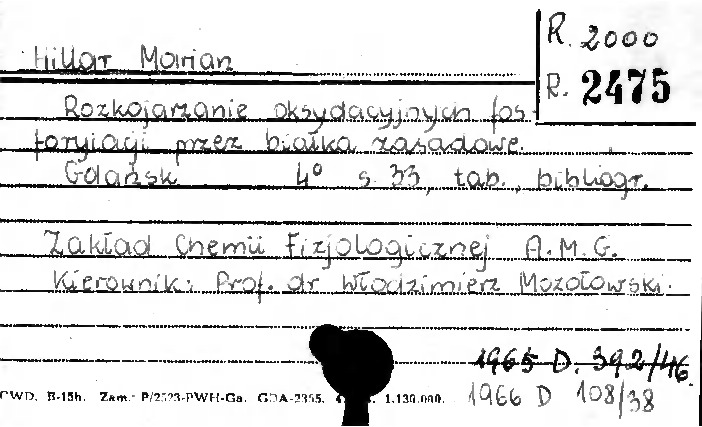 R. 2000
Hillar Marian
R. 2475
Rozkojarzanie oksydacyjnych fos-
forylacji przez białka zasadowe.
Gdańsk 4° s. 33, tab., bibliogr.
Zakład Chemii Fizjologicznej A.M.G.
Kierownik: Prof. dr Włodzimierz Mozołowski.
1965 D. 392/46.
1966 D 108/38
CWD. B-15h. Zam. P/2523-PWH-Ga. GDA-2355. 1.130.000.